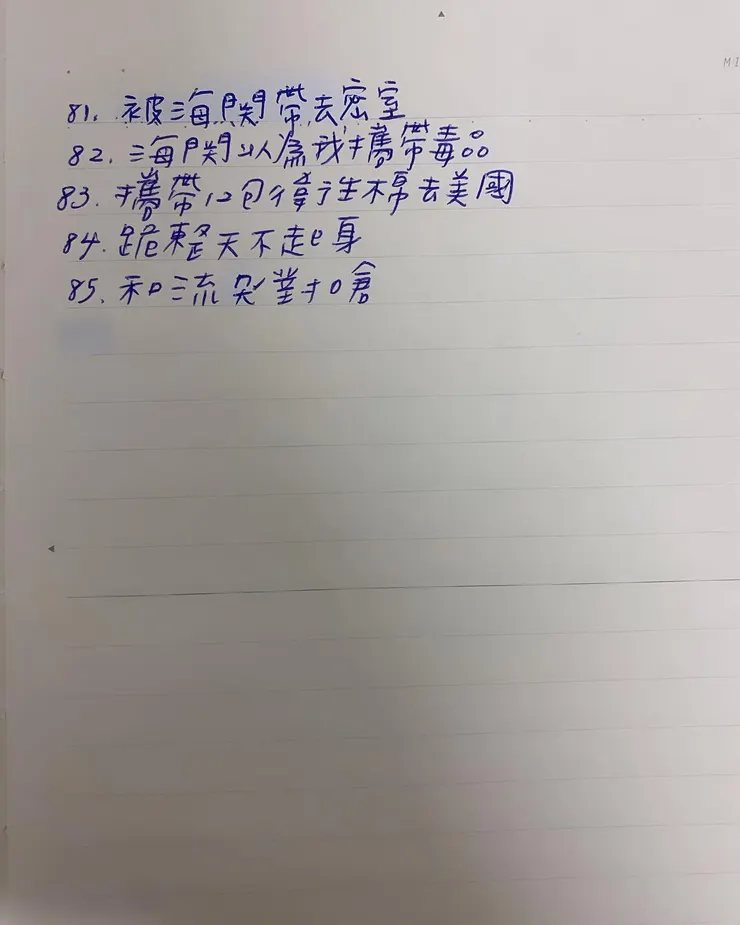 81. 被海關帶去密室
82. 海關以為我攜帶毒品
83. 攜帶12包衛生棉去美國
84. 跪整天不起身
85. 和流氓嗆